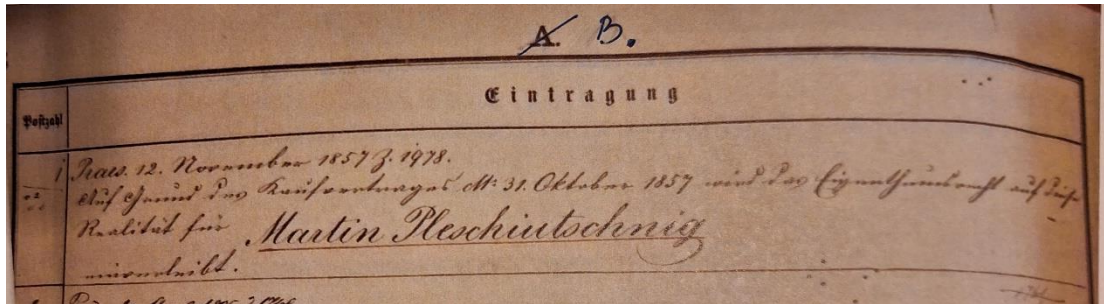 A. B.
Eintragung
Postzahl
1 Praes. 12. November 1857 Z. 1978.
Auf Grund des Kaufvertrages dto 31. Oktober 1857 wird das Eigenthumsrecht auf diese
Realität für Martin Pleschiutschnig
einverleibt.